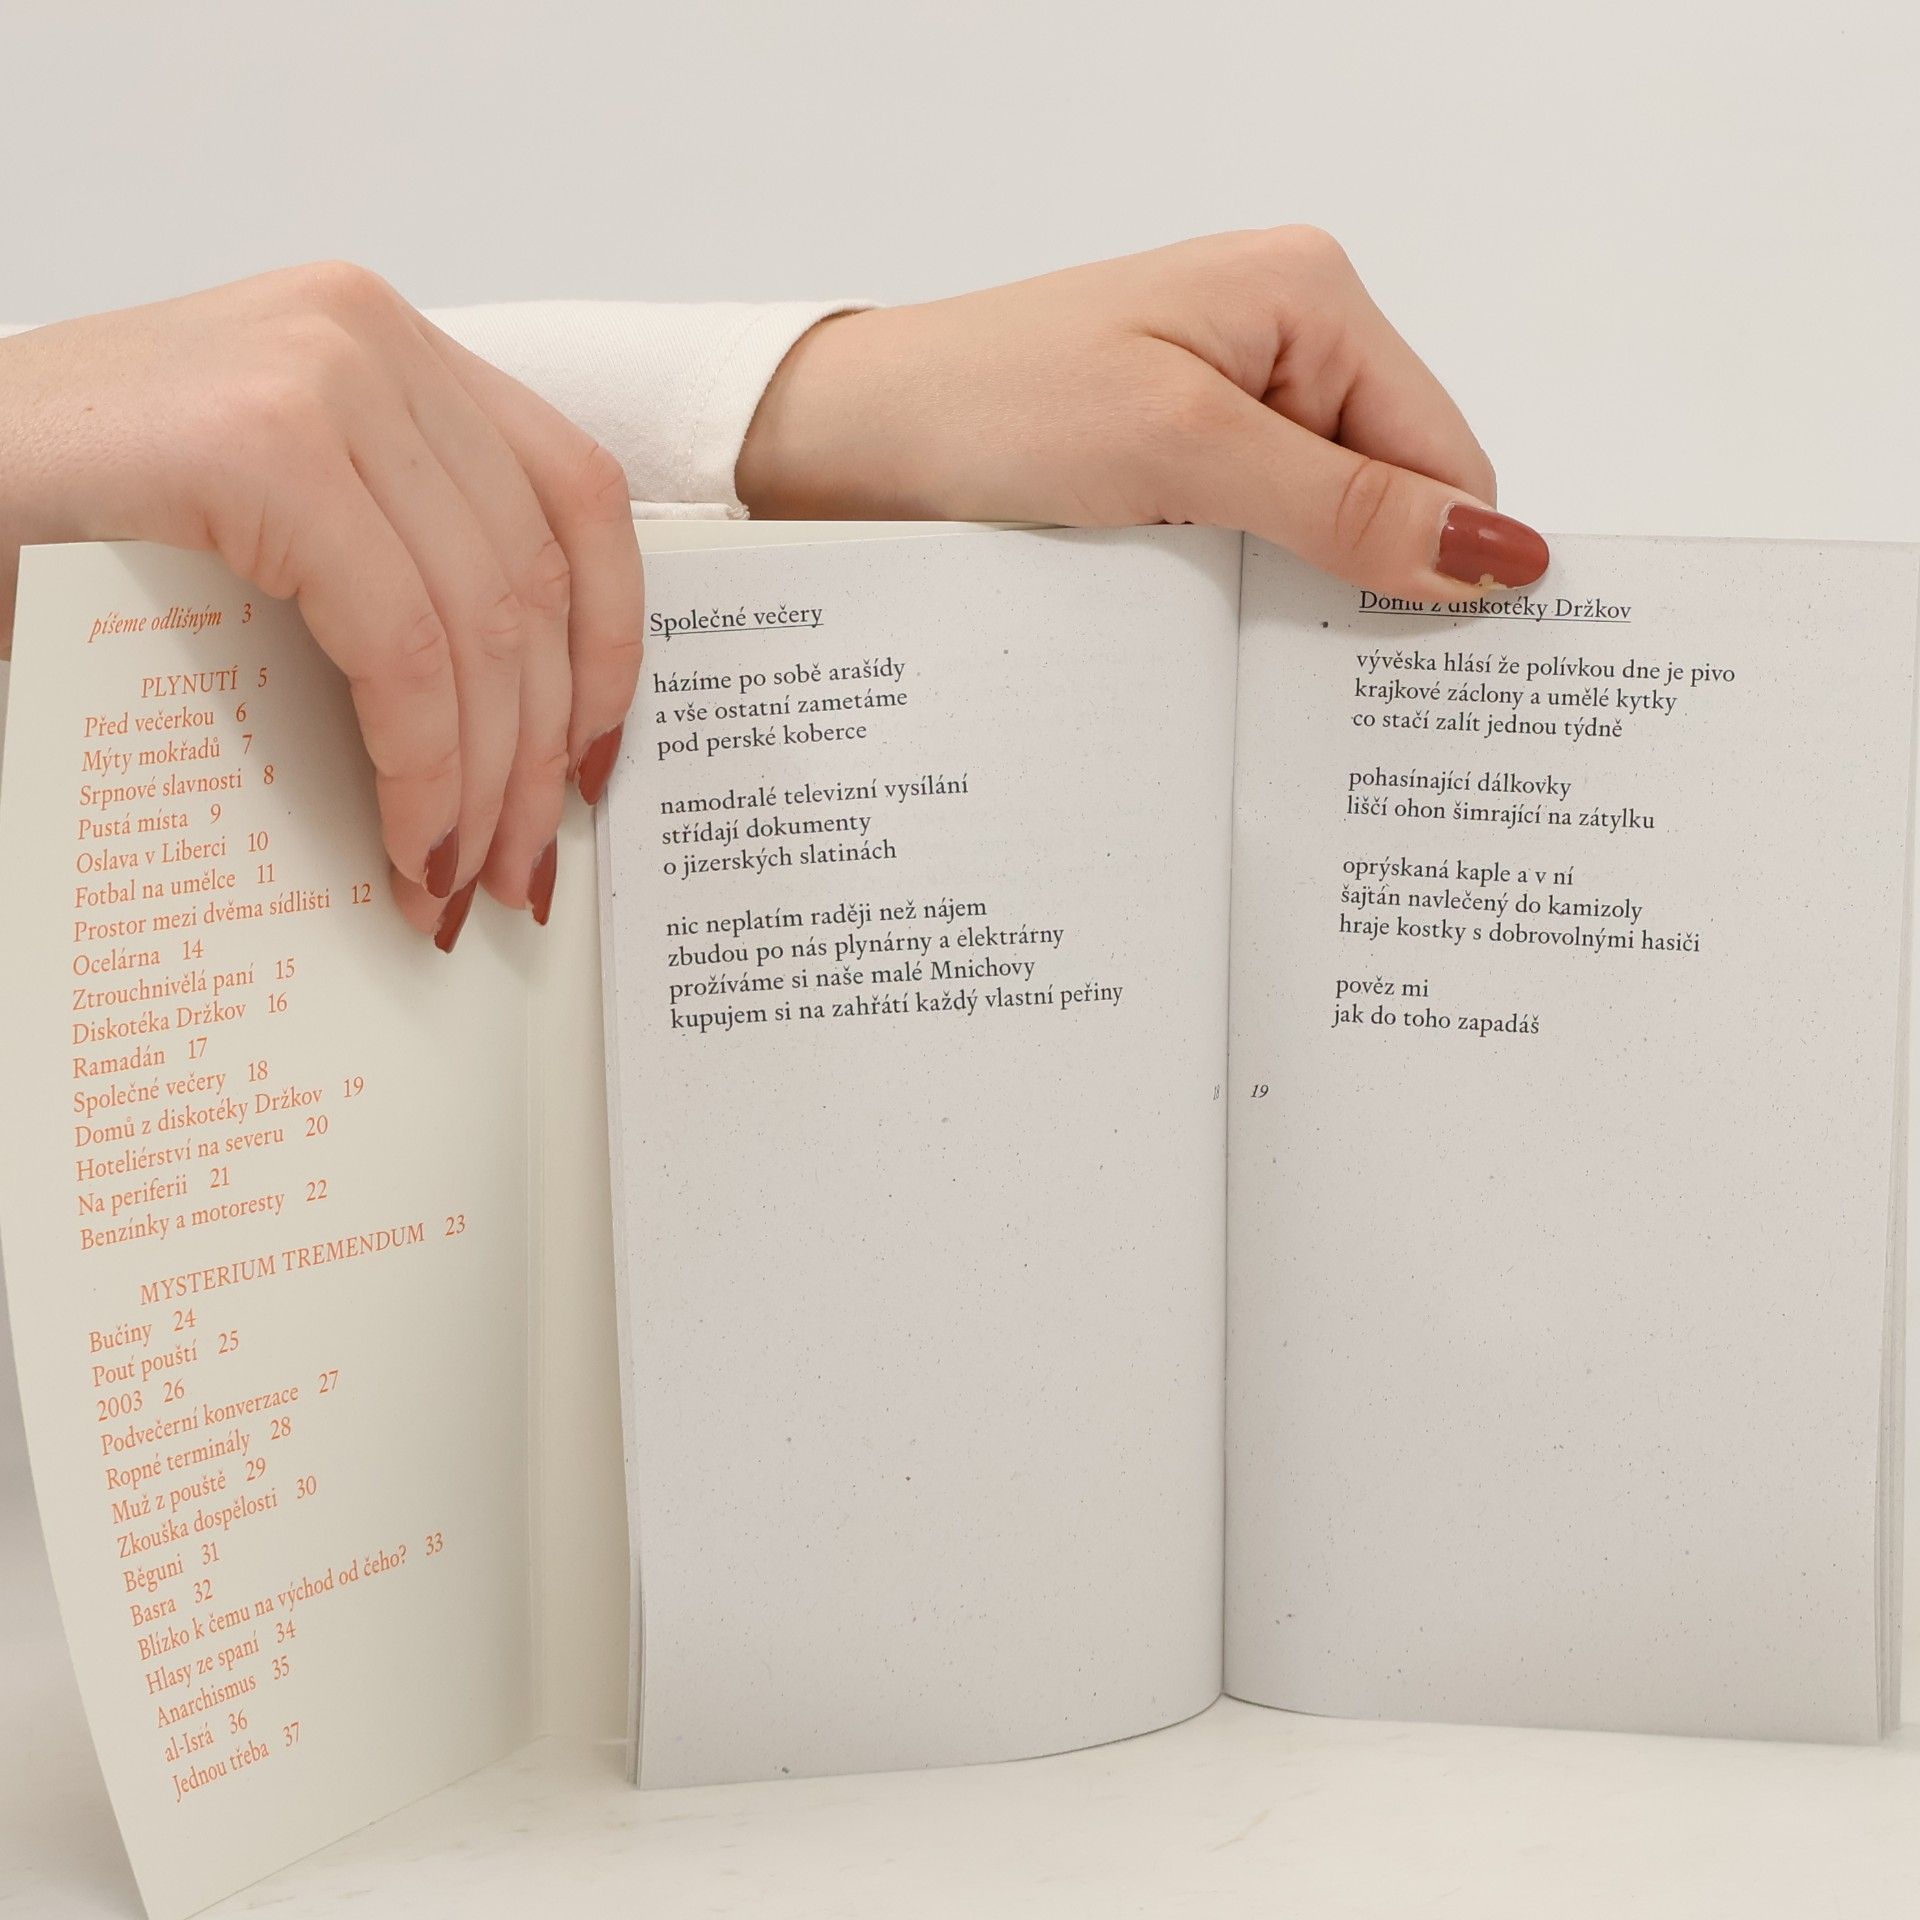 píšeme odlišným 3
PLYNUTÍ 5
Před večerkou 6
Mýty mokřadů 7
Srpnové slavnosti 8
Pustá místa 9
Oslava v Liberci 10
Fotbal na umělce 11
Prostor mezi dvěma sídlišti 12
Ocelárna 14
Ztrouchnivělá paní 15
Diskotéka Držkov 16
Ramadán 17
Společné večery 18
Domů z diskotéky Držkov 19
Hoteliérství na severu 20
Na periferii 21
Benzínky a motoresty 22
MYSTERIUM TREMENDUM 23
Bučiny 24
Pouť pouští 25
2003 26
Podvečerní konverzace 27
Ropné terminály 28
Muž z pouště 29
Zkouška dospělosti 30
Běguni 31
Basra 32
Blízko k čemu na východ od čeho? 33
Hlasy ze spaní 34
Anarchismus 35
al-Isrá 36
Jednou třeba 37
Společné večery
házíme po sobě arašídy
a vše ostatní zametáme
pod perské koberce
namodralé televizní vysílání
střídají dokumenty
o jizerských slatinách
nic neplatím raději než nájem
zbudou po nás plynárny a elektrárny
prožíváme si naše malé Mnichovy
kupujem si na zahřátí každý vlastní peřiny
18
Domů z diskotéky Držkov
vývěska hlásí že polívkou dne je pivo
krajkové záclony a umělé kytky
co stačí zalít jednou týdně
pohasínající dálkovky
liščí ohon šimrající na zátylku
oprýskaná kaple a v ní
šajtán navlečený do kamizoly
hraje kostky s dobrovolnými hasiči
pověz mi
jak do toho zapadáš
19